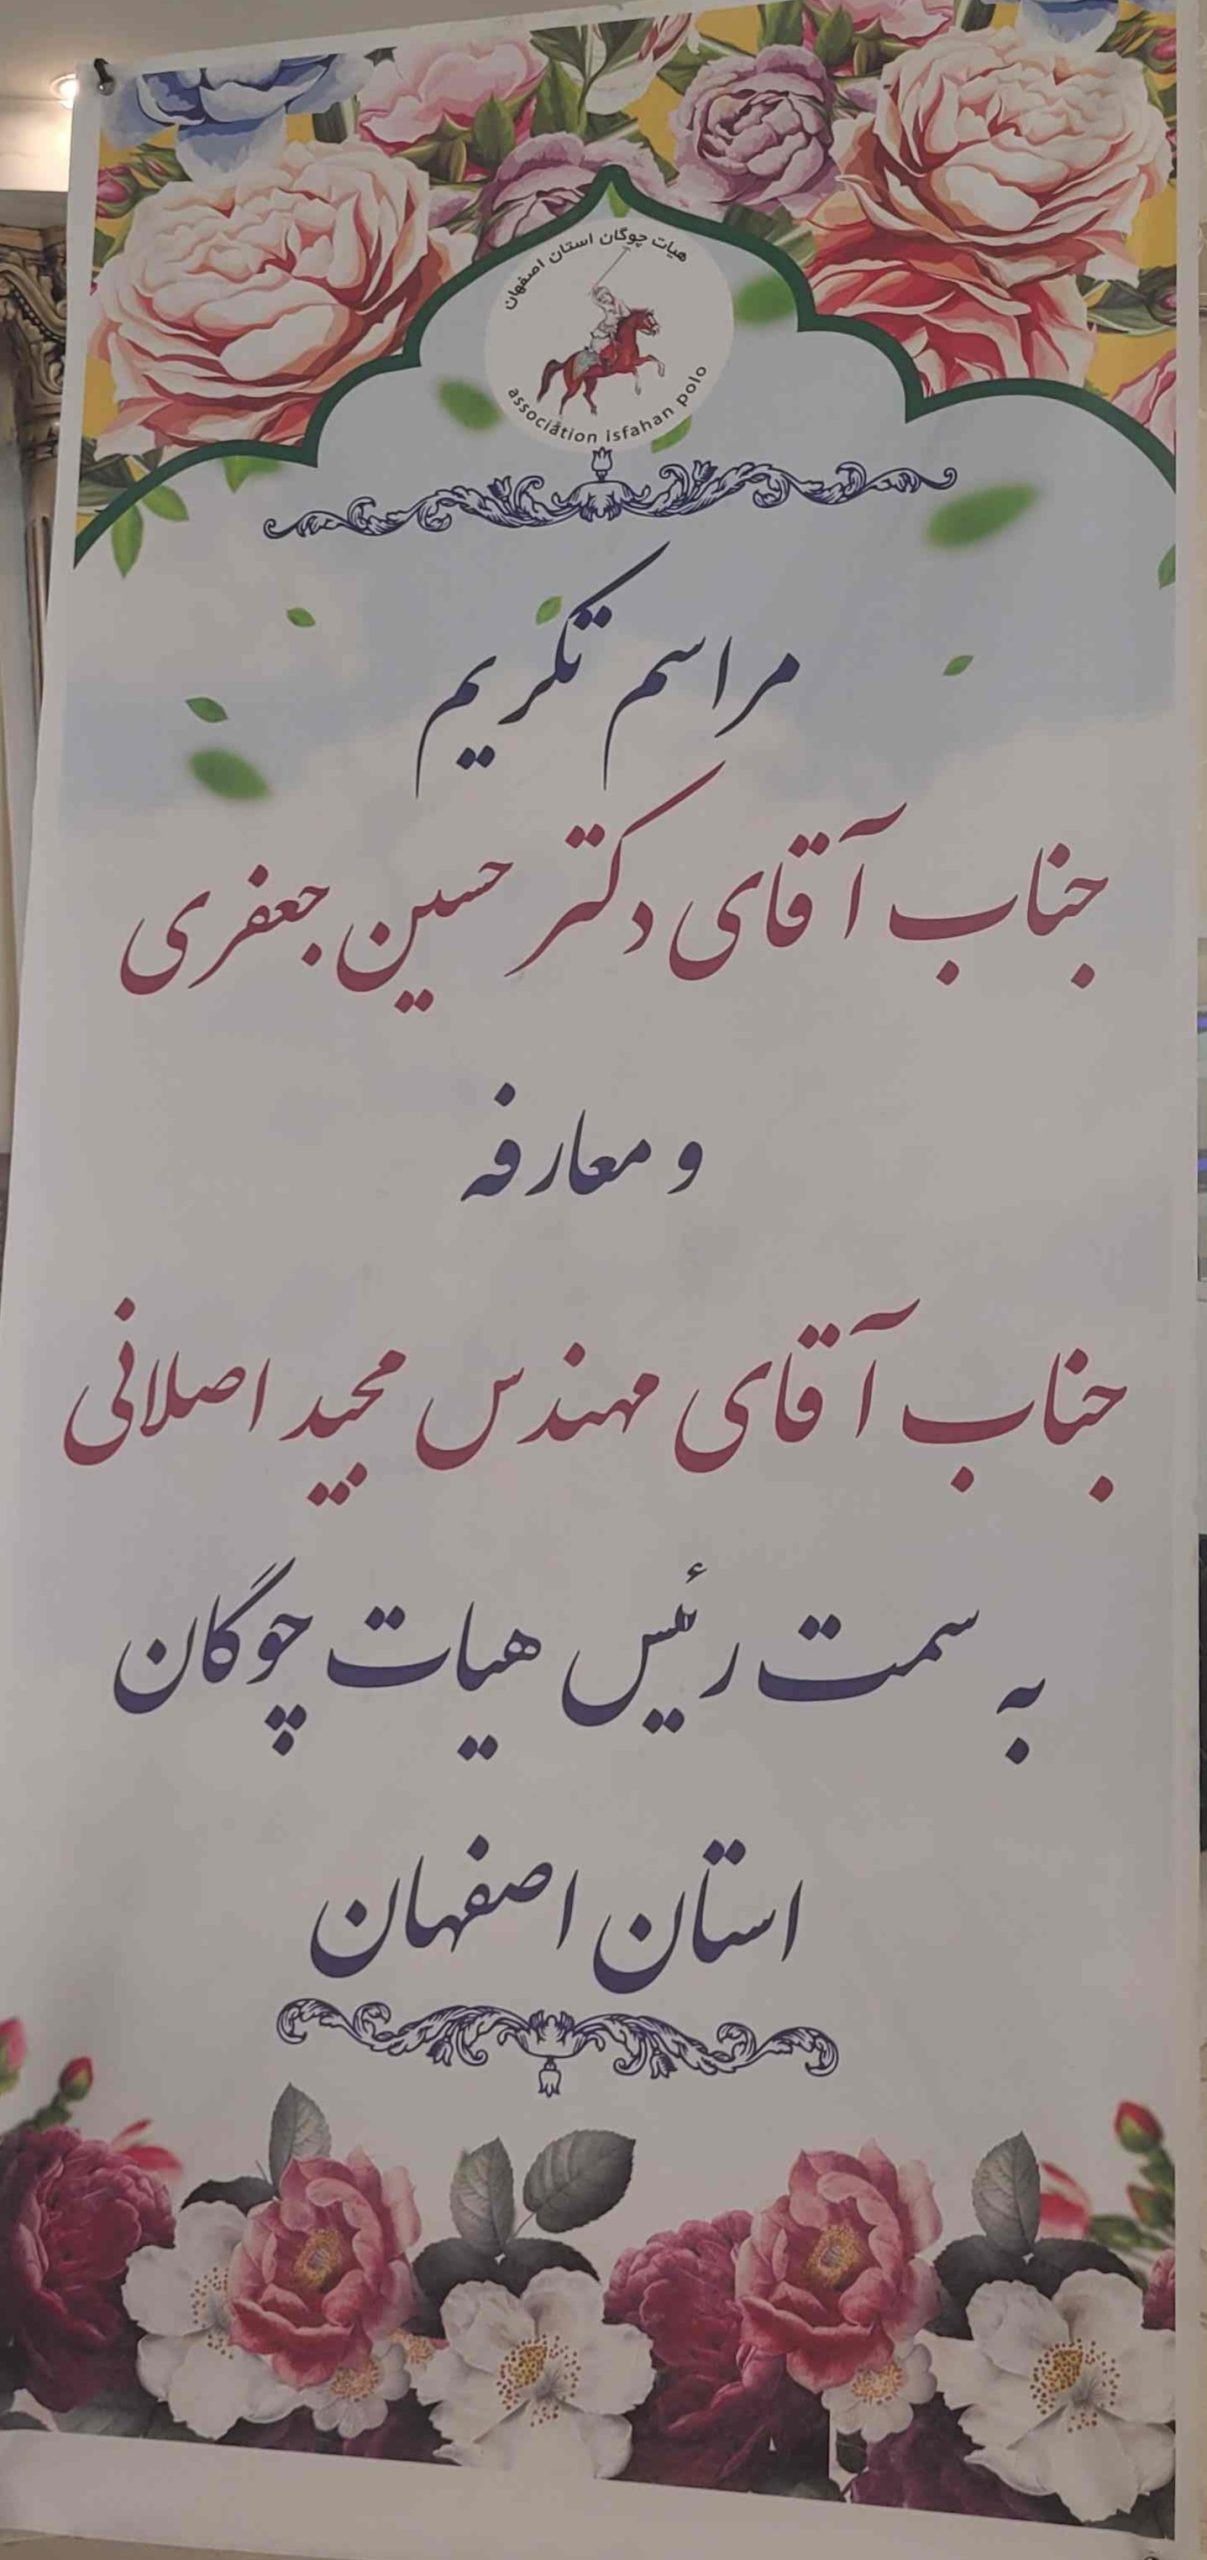 هیات چوگان استان اصفهان
association isfahan polo
مراسم تکریم
جناب آقای دکتر حسین جعفری
و معارفه
جناب آقای مهندس مجید اصلانی
به سمت رئیس هیات چوگان
استان اصفهان